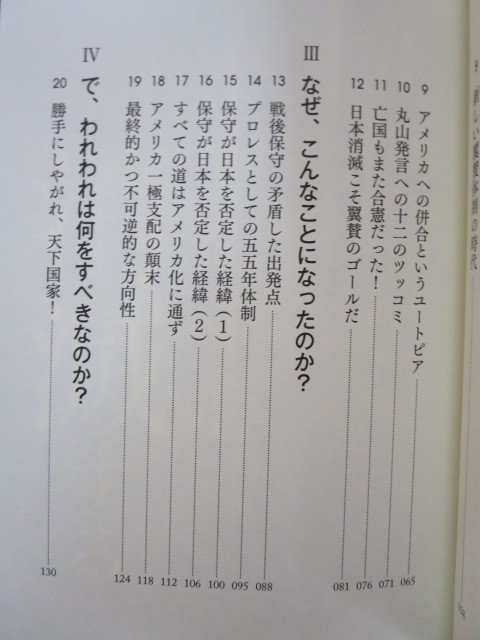 9 アメリカへの併合というユートピア 065
10 丸山発言への十二のツッコミ 071
11 亡国もまた合憲だった! 076
12 日本消滅こそ翼賛のゴールだ 081
III なぜ、こんなことになったのか?
13 戦後保守の矛盾した出発点 088
14 プロレスとしての五五年体制 095
15 保守が日本を否定した経緯(1) 100
16 保守が日本を否定した経緯(2) 106
17 すべての道はアメリカ化に通ず 112
18 アメリカ一極支配の顛末 118
19 最終的かつ不可逆的な方向性 124
IV で、われわれは何をすべきなのか?
20 勝手にしやがれ、天下国家! 130